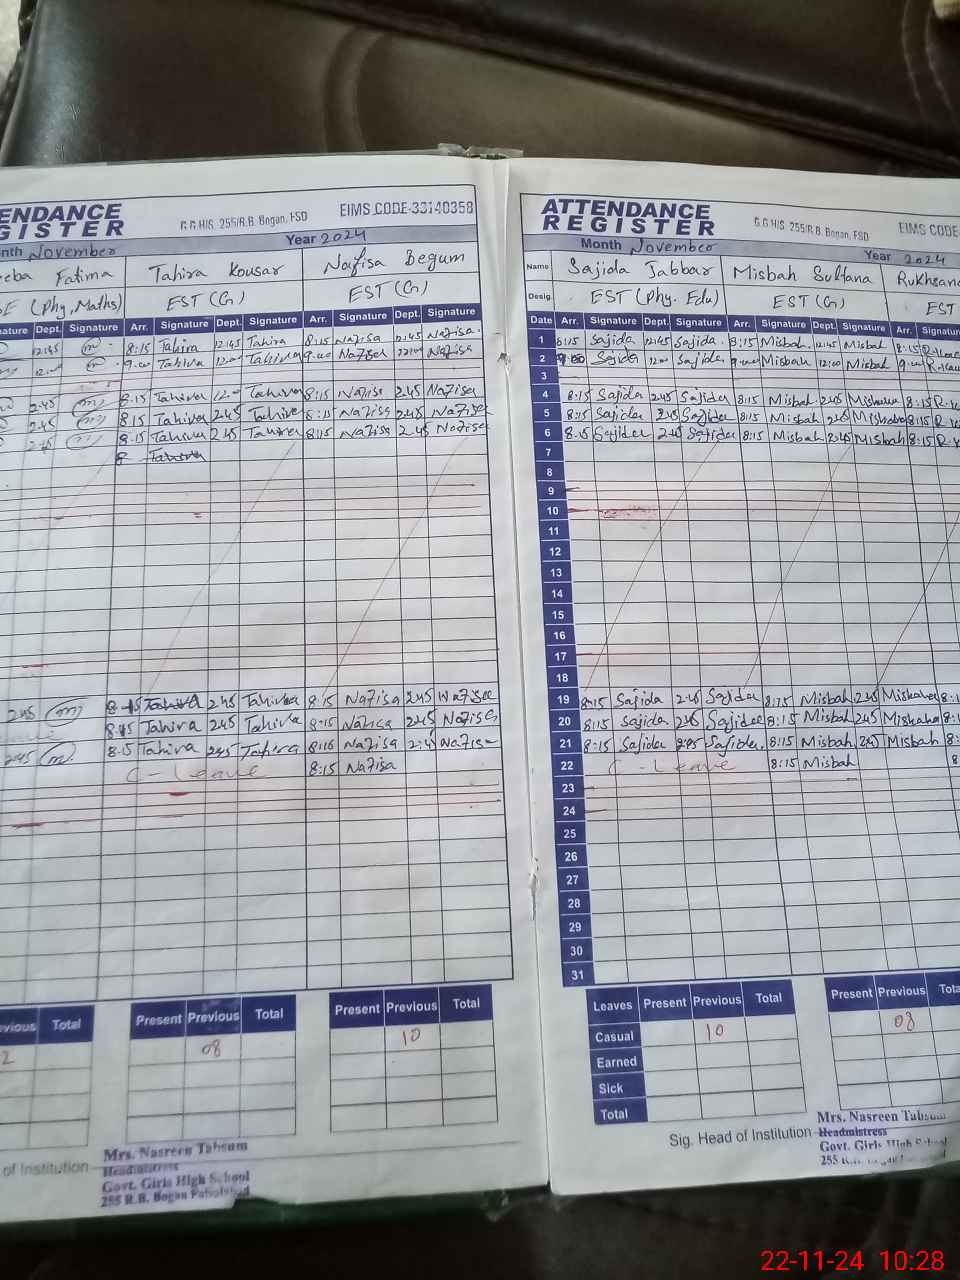 ENDANCE
GISTER
G.G.H/S. 255/R.B. Bogan, FSD
EIMS CODE-33140358
nth November
Year 2024
eeba Fatima
Tahira Kousar
Nafisa Begum
SE (Phy, Maths)
EST (G)
EST (G)
nature Dept. Signature Arr. Signature Dept. Signature Arr. Signature Dept. Signature
12:45 8:15 Tahira 12:45 Tahira 8:15 Nafisa 12:45 Nafisa
9:00 Tahira 12:00 Tahira 9:00 Nafisa 12:00 Nafisa
2:45 8:15 Tahira 12:00 Tahira 8:15 Nafisa 2:45 Nafisa
2:45 8:15 Tahira 2:45 Tahira 8:15 Nafisa 2:45 Nafisa
2:45 8:15 Tahira 2:45 Tahira 8:15 Nafisa 2:45 Nafisa
8 Tahira
2:45 8:15 Tahira 2:45 Tahira 8:15 Nafisa 2:45 Nafisa
8:15 Tahira 2:45 Tahira 8:15 Nafisa 2:45 Nafisa
2:45 8:15 Tahira 2:45 Tahira 8:16 Nafisa 2:45 Nafisa
C - Leave 8:15 Nafisa
evious Total
Present Previous Total
Present Previous Total
2
08
10
of Institution
Mrs. Nasreen Tabsum
Headmistress
Govt. Girls High School
255 R.B. Bogan Faisalabad
ATTENDANCE
REGISTER
G.G.H/S. 255/R.B. Bogan, FSD
EIMS CODE-
Month November
Year 2024
Name Sajida Jabbar Misbah Sultana Rukhsana
Desig. EST (Phy. Edu) EST (G) EST
Date Arr. Signature Dept. Signature Arr. Signature Dept. Signature Arr. Signature
1 8:15 Sajida 12:45 Sajida 8:15 Misbah 12:45 Misbah 8:15
2 9:00 Sajida 12:00 Sajida 9:00 Misbah 12:00 Misbah 9:00
3
4 8:15 Sajida 2:45 Sajida 8:15 Misbah 2:45 Misbah 8:15
5 8:15 Sajida 2:45 Sajida 8:15 Misbah 2:45 Misbah 8:15
6 8:15 Sajida 2:45 Sajida 8:15 Misbah 2:45 Misbah 8:15
7
8
9
10
11
12
13
14
15
16
17
18
19 8:15 Sajida 2:45 Sajida 8:15 Misbah 2:45 Misbah 8:1
20 8:15 Sajida 2:45 Sajida 8:15 Misbah 2:45 Misbah 8:1
21 8:15 Sajida 2:45 Sajida 8:15 Misbah 2:45 Misbah 8:
22 C - Leave 8:15 Misbah 8
23
24
25
26
27
28
29
30
31
Leaves Present Previous Total
Present Previous Tota
Casual 10
08
Earned
Sick
Total
Sig. Head of Institution
Mrs. Nasreen Tabsum
Headmistress
Govt. Girls High School
255
22-11-24 10:28